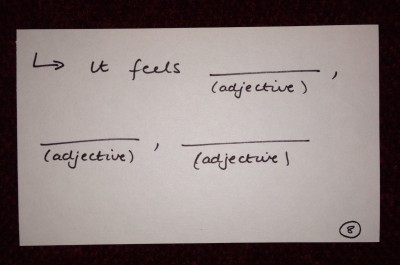 ↳ It feels ________ ,
(adjective)
________ , ________
(adjective) (adjective)
8